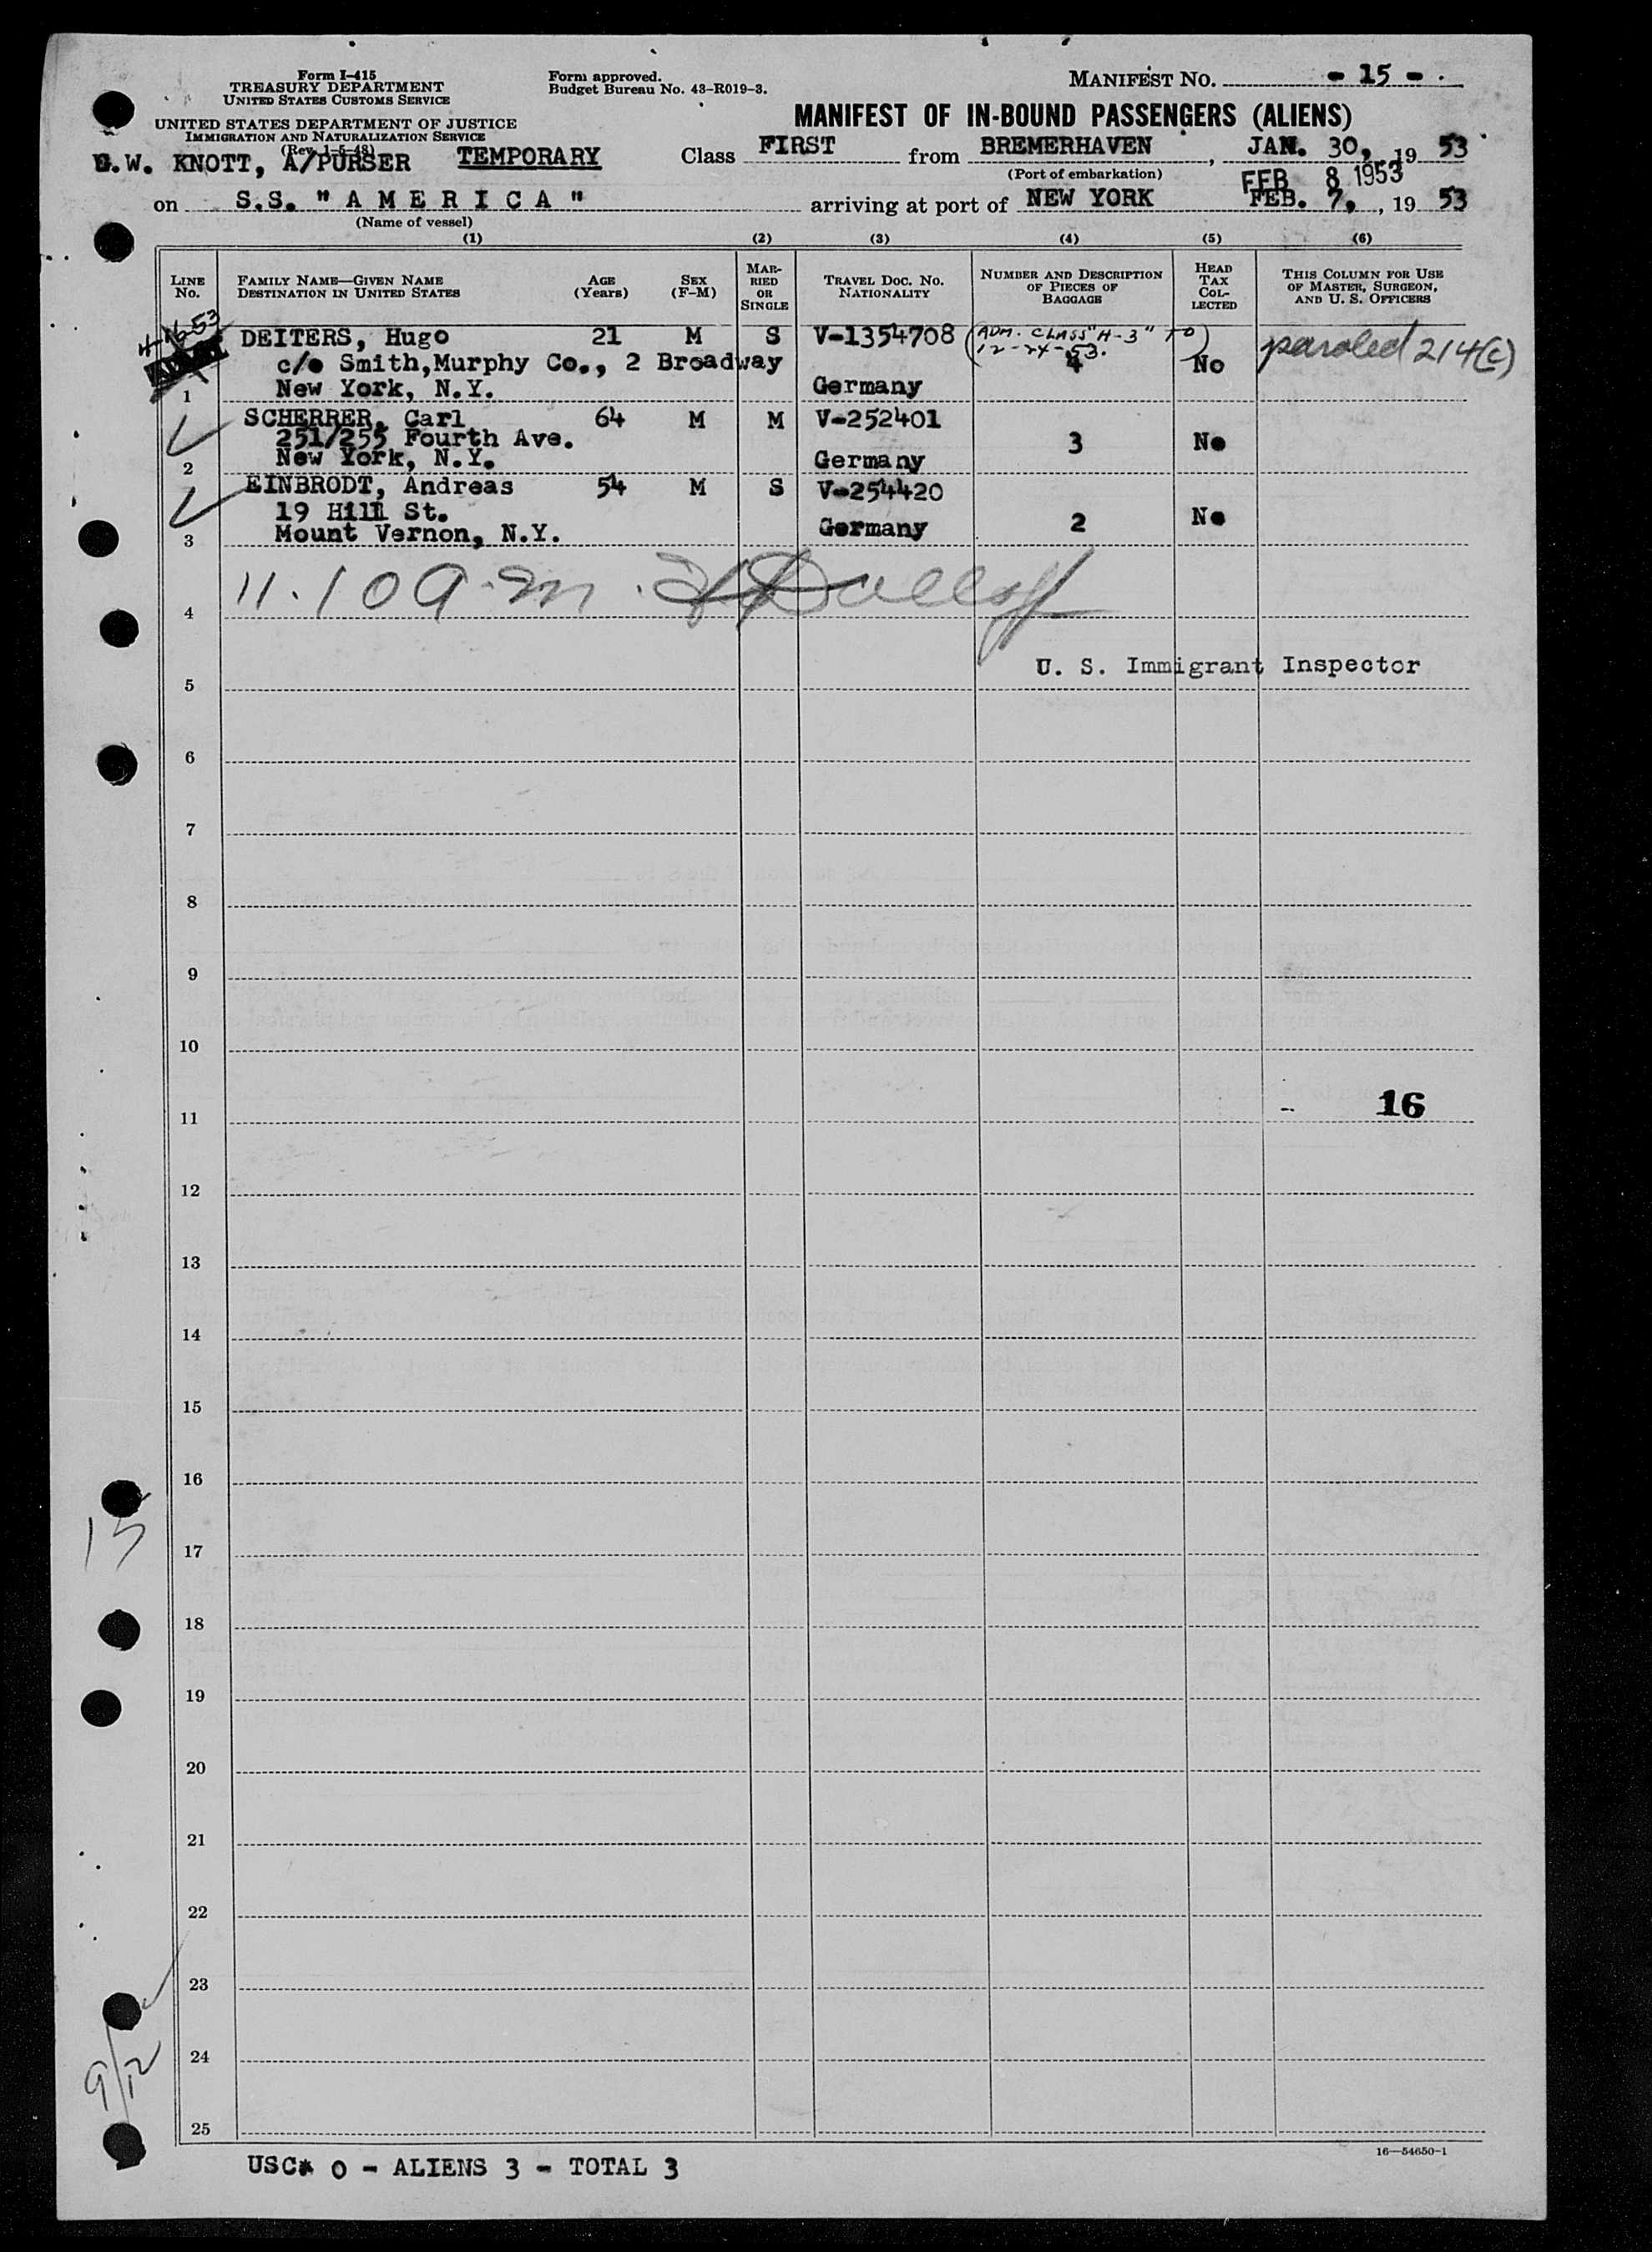 Form I-415
TREASURY DEPARTMENT
UNITED STATES CUSTOMS SERVICE
UNITED STATES DEPARTMENT OF JUSTICE
IMMIGRATION AND NATURALIZATION SERVICE
(Rev. 1-5-48)
Form approved.
Budget Bureau No. 43-R019-3.
MANIFEST NO. - 15 -
MANIFEST OF IN-BOUND PASSENGERS (ALIENS)
G.W. KNOTT, A/PURSER TEMPORARY Class FIRST from BREMERHAVEN, JAN. 30, 19 53
(Port of embarkation)
FEB 8 1953
on S.S. "A M E R I C A" arriving at port of NEW YORK FEB. 7, , 19 53
(Name of vessel)
(1) (2) (3) (4) (5) (6)
LINE No. FAMILY NAME—GIVEN NAME DESTINATION IN UNITED STATES AGE (Years) SEX (F-M) MARRIED OR SINGLE TRAVEL DOC. NO. NATIONALITY NUMBER AND DESCRIPTION OF PIECES OF BAGGAGE HEAD TAX COLLECTED THIS COLUMN FOR USE OF MASTER, SURGEON, AND U. S. OFFICERS
4-16-53
DEITERS, Hugo 21 M S V-1354708 (ADM. CLASS "H-3" TO 12-24-53.) paroled 214(c)
c/o Smith,Murphy Co., 2 Broadway 4 No
1 New York, N.Y. Germany
SCHERRER, Carl 64 M M V-252401
251/255 Fourth Ave. 3 No
2 New York, N.Y. Germany
EINBRODT, Andreas 54 M S V-254420
19 Hill St. 2 No
3 Mount Vernon, N.Y. Germany
11.10 a.m.
4
U. S. Immigrant Inspector
5
6
7
8
9
10
11 16
12
13
14
15
16
15
17
18
19
20
21
22
23
24
9/12
25
16—54650-1
USC* 0 - ALIENS 3 - TOTAL 3